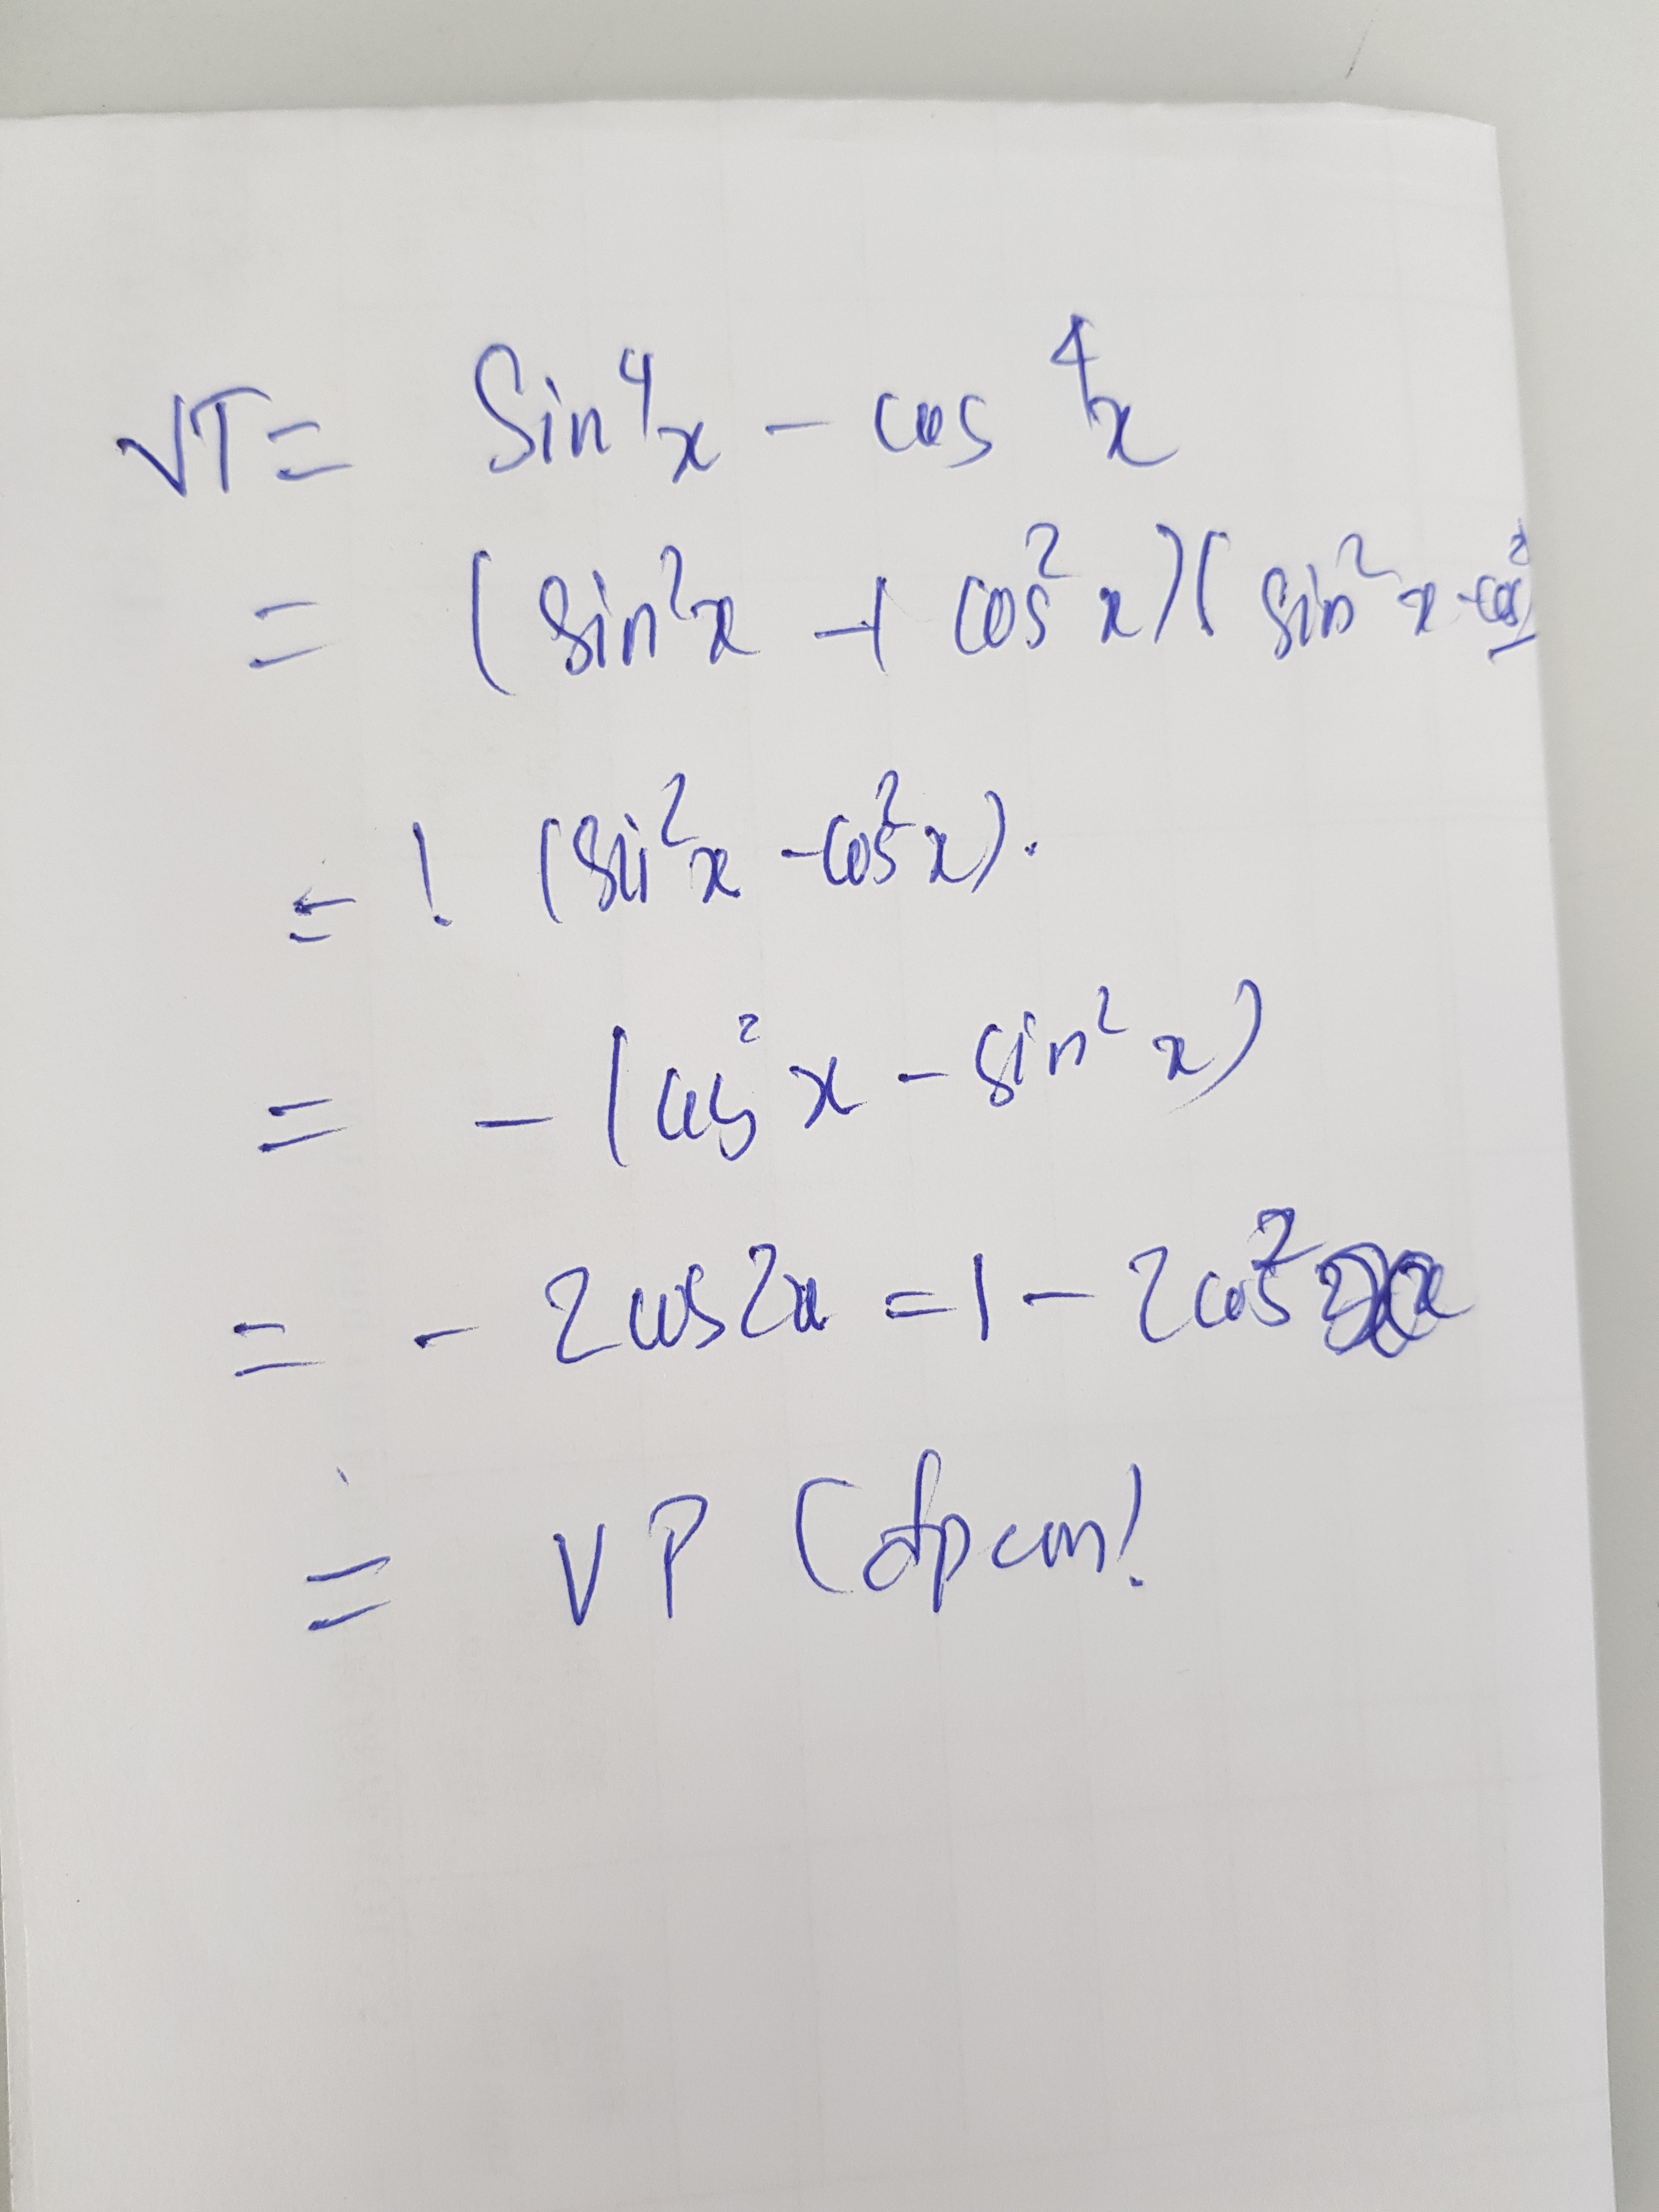 VT = Sin⁴x - cos⁴x
= (sin²x + cos²x)(sin²x - cos²
= 1 (sin²x - cos²x).
= - (cos²x - sin²x)
= - 2cos2x = 1 - 2cos² x
= VP (đpcm!